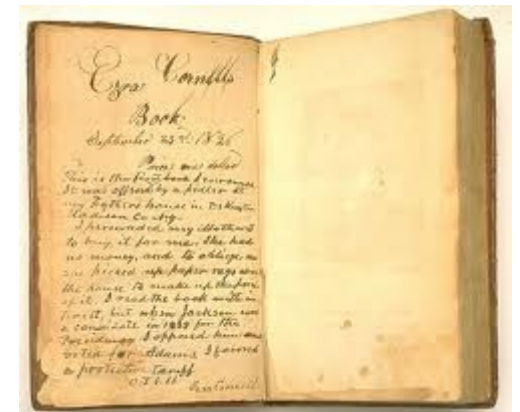 Ezra Cornells
Book
September 23rd 1826
Price one dollar
This is the first book I ever owned
It was offered by a pedler at
my Fathers house in DeRuyter
Madison Co Ny.
I persuaded my Mother
to buy it for me. She had
no money, and to oblige me
she picked up paper rags
the house to make up the
of it. I read the book with
but when Jackson was
a candidate in for the
Presidency I opposed him and
voted for Adams I favored
a protective tariff